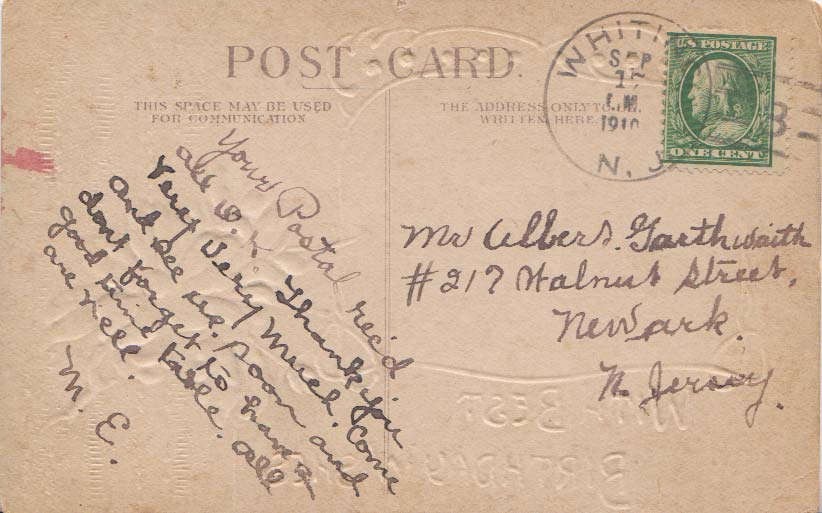 POST CARD.
THIS SPACE MAY BE USED
FOR COMMUNICATION
THE ADDRESS ONLY TO BE
WRITTEN HERE.
WHITI
SEP
17
1910
N. J.
U.S. POSTAGE
ONE CENT
3
Your Postal rec'd
all O.K. Thank you
very very much. Come
and see us. soon and
dont forget to have a
good time table. all
are well.
M. E.
Mr Albert. Garthwaith
#217 Walnut Street,
Newark.
N. Jersey.
WITH BEST
BIRTHDAY WISHES